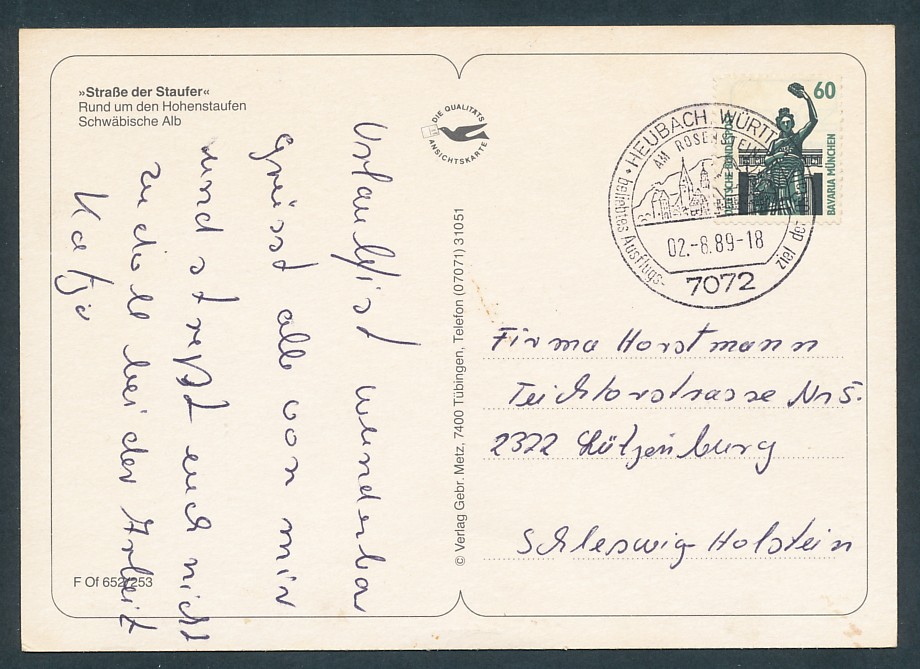 »Straße der Staufer«
Rund um den Hohenstaufen
Schwäbische Alb
DIE QUALITÄTS
ANSICHTSKARTE
60
DEUTSCHE BUNDESPOST
BAVARIA MÜNCHEN
HEUBACH, WÜRTT
AM ROSENSTEIN
beliebtes Ausflugs-
ziel der
02.-8.89-18
7072
Urlaub ist wunderba
grüsst alle von mir
und streßt euch nicht
zu doll bei der Arbeit
Katja
© Verlag Gebr. Metz, 7400 Tübingen, Telefon (07071) 31051
Firma Horstmann
Teichtorstrasse Nr 5.
2322 Lütjenburg
Schleswig-Holstein
F Of 652/253